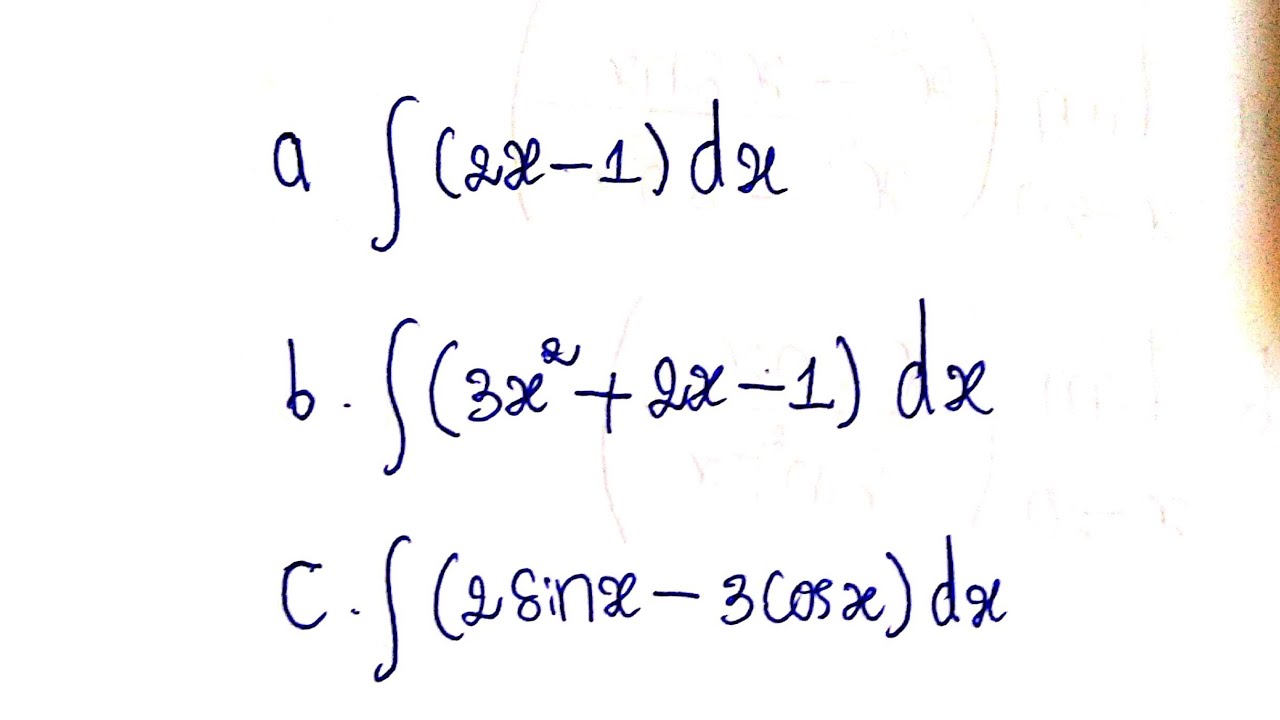 a ∫(2x-1)dx
b. ∫(3x²+2x-1) dx
C. ∫(2sinx-3cosx)dx